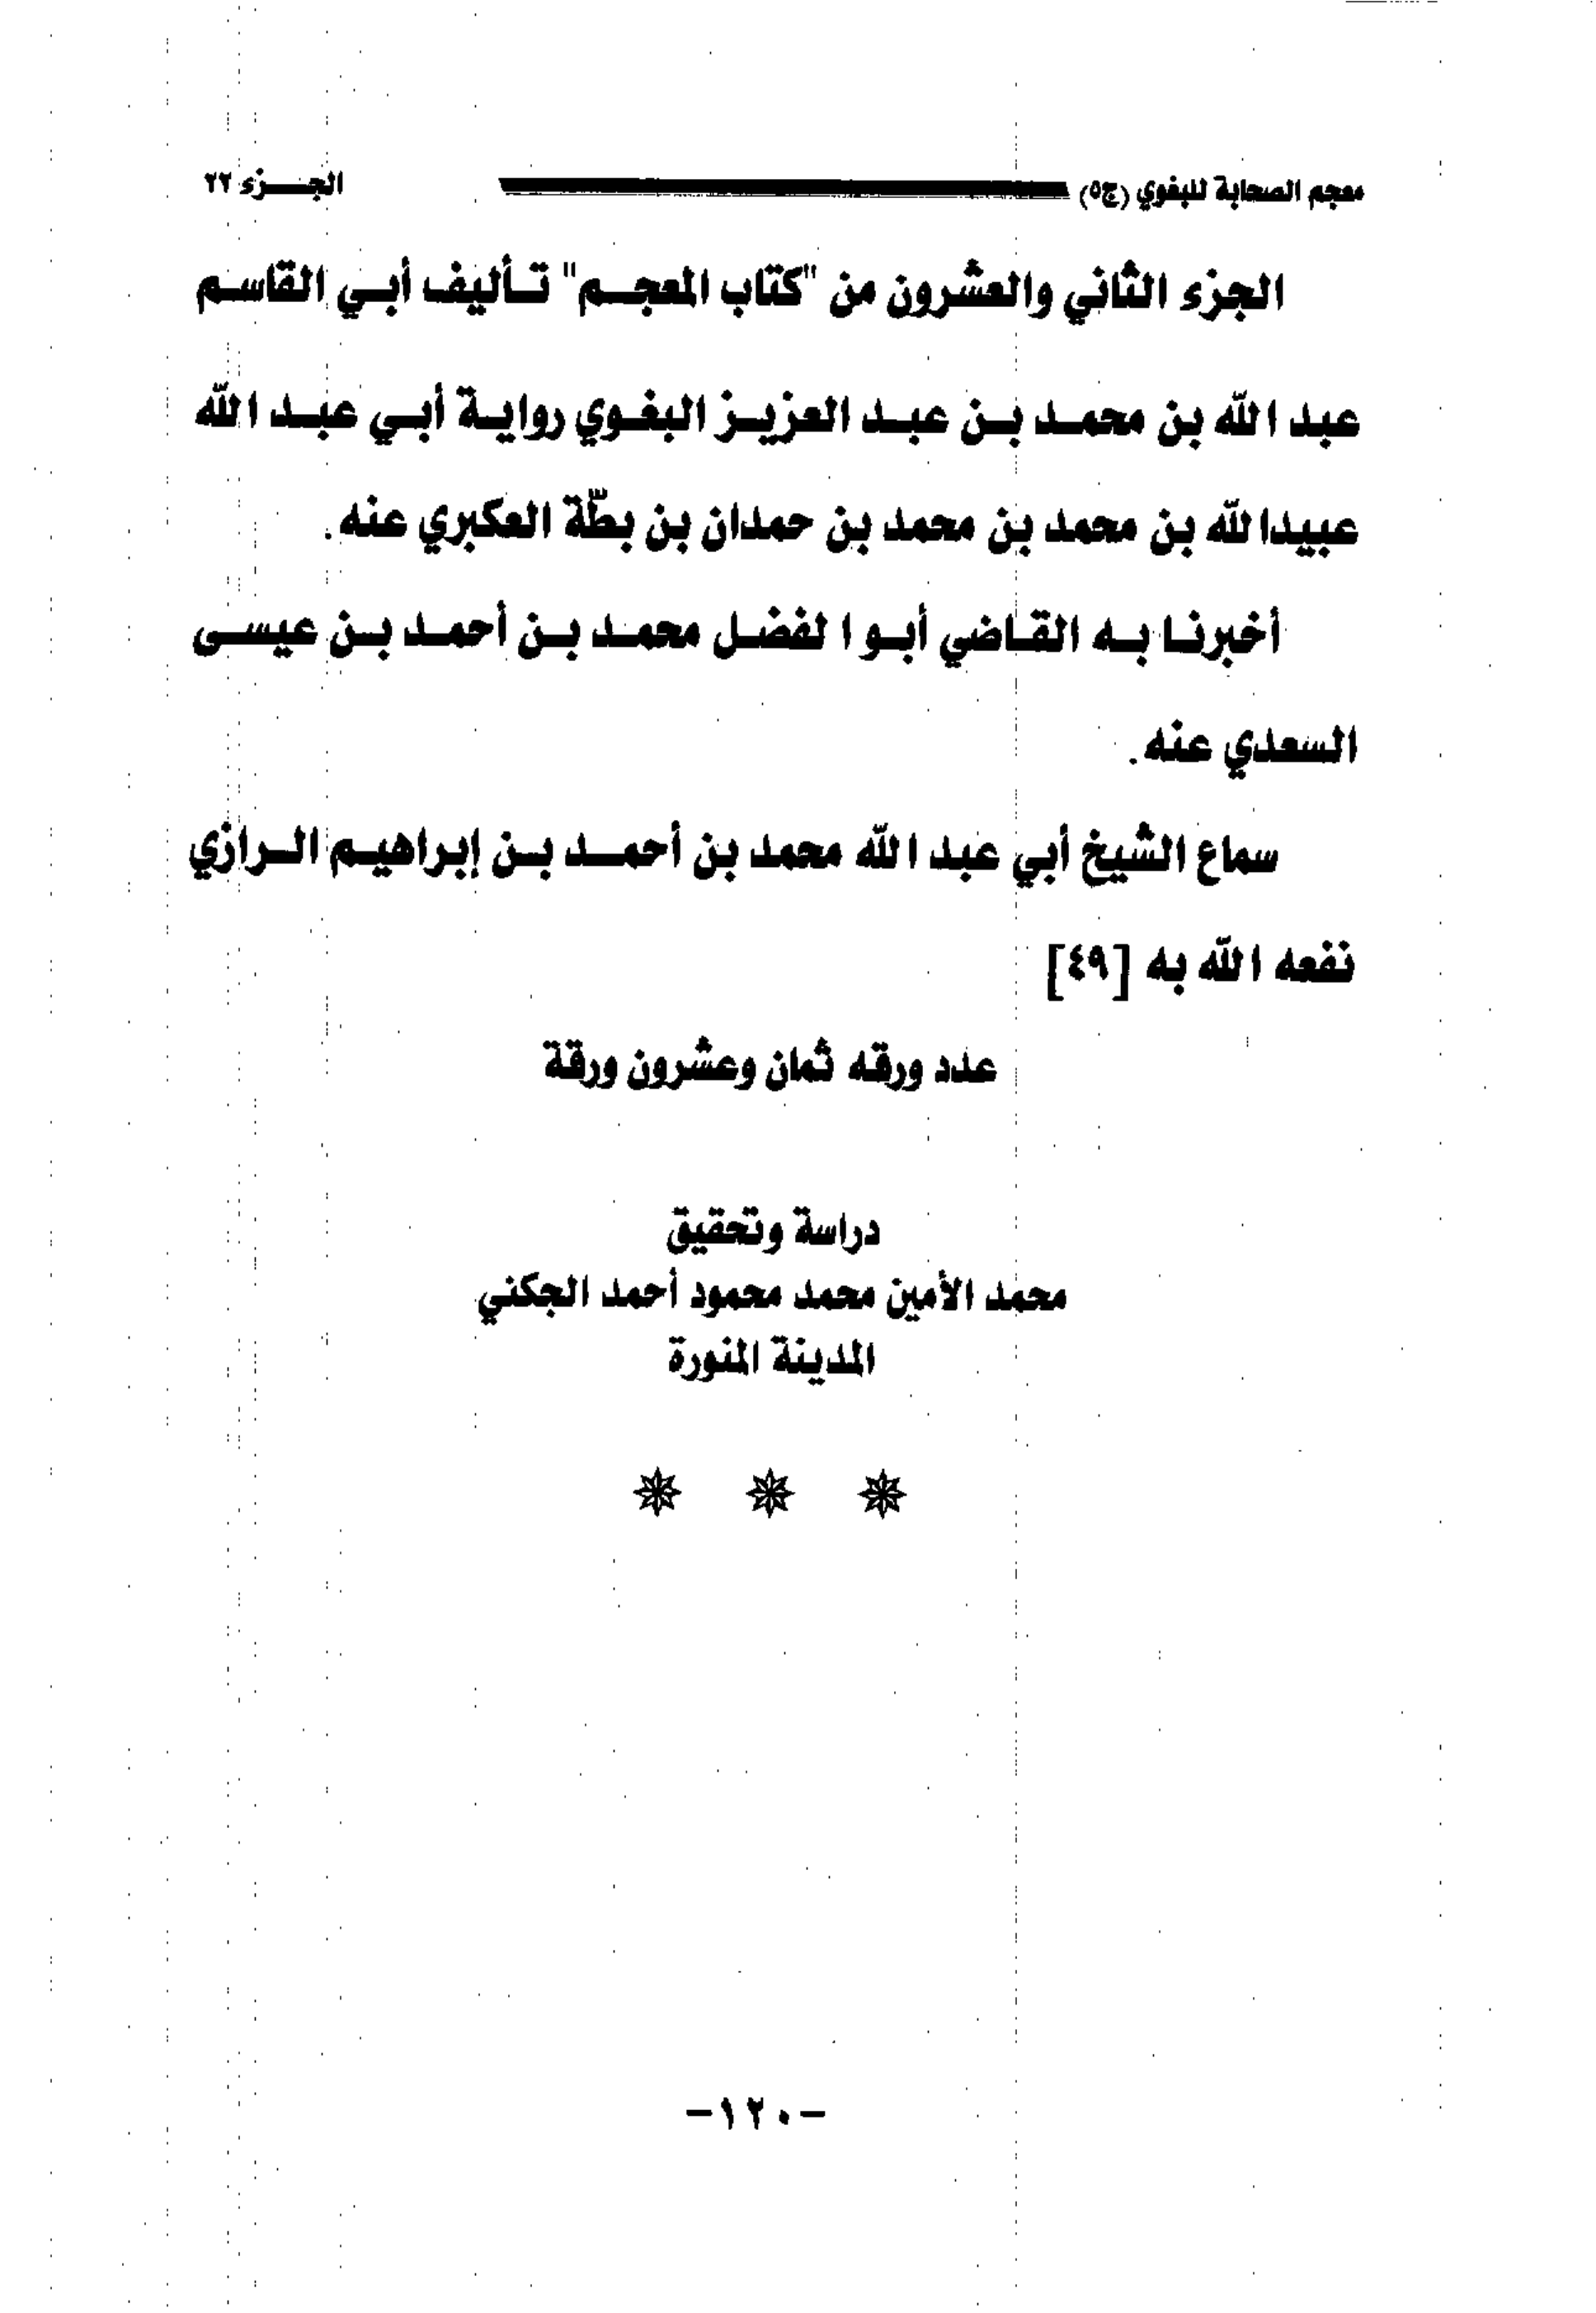 معجم الصحابة للبغوي (ج٥) الجـــزء ٢٢
الجزء الثاني والعشرون من "كتاب المعجم" تأليف أبي القاسم
عبد الله بن محمد بن عبد العزيز البغوي رواية أبي عبد الله
عبيدالله بن محمد بن محمد بن حمدان بن بطّة العكبري عنه.
أخبرنا به القاضي أبو الفضل محمد بن أحمد بن عيسى
السعدي عنه.
سماع الشيخ أبي عبد الله محمد بن أحمد بن إبراهيم الرازي
نفعه الله به [٤٩]
عدد ورقه ثمان وعشرون ورقة
دراسة وتحقيق
محمد الأمين محمد محمود أحمد الجكني
المدينة المنورة
-١٢٠-